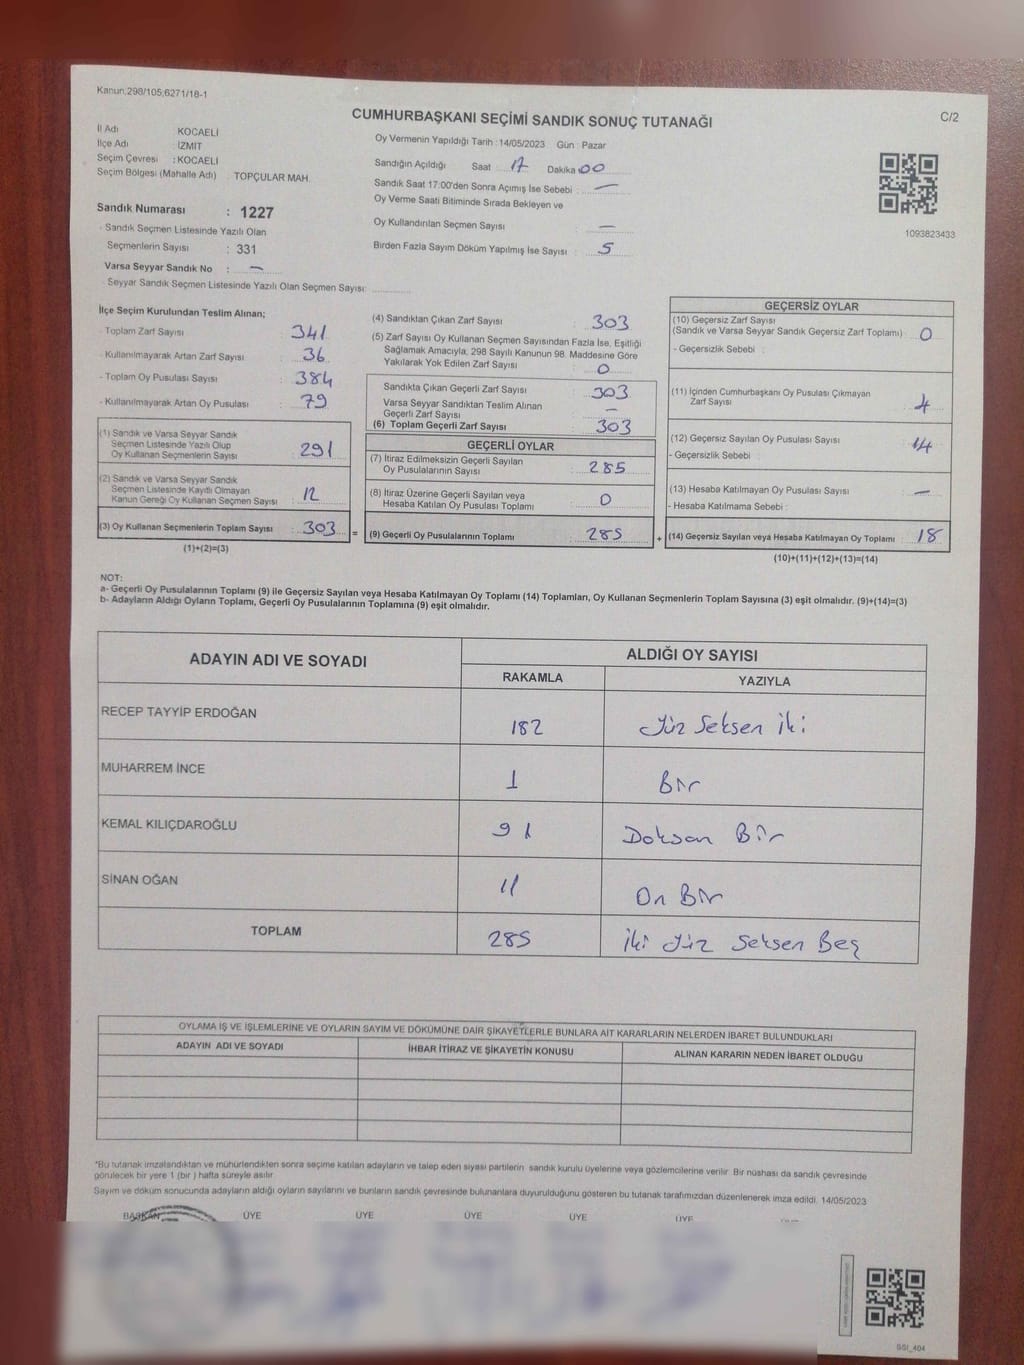 Kanun,298/105;6271/18-1
CUMHURBAŞKANI SEÇİMİ SANDIK SONUÇ TUTANAĞI
C/2
İl Adı KOCAELİ
İlçe Adı : İZMİT
Seçim Çevresi : KOCAELİ
Seçim Bölgesi (Mahalle Adı) TOPÇULAR MAH.
Sandık Numarası : 1227
- Sandık Seçmen Listesinde Yazılı Olan
Seçmenlerin Sayısı : 331
Varsa Seyyar Sandık No : —
- Seyyar Sandık Seçmen Listesinde Yazılı Olan Seçmen Sayısı:
Oy Vermenin Yapıldığı Tarih :14/05/2023 Gün : Pazar
Sandığın Açıldığı Saat 17 Dakika 00
Sandık Saat 17:00'den Sonra Açımış İse Sebebi : —
Oy Verme Saati Bitiminde Sırada Bekleyen ve
Oy Kullandırılan Seçmen Sayısı : —
Birden Fazla Sayım Döküm Yapılmış İse Sayısı : 5
1093823433
İlçe Seçim Kurulundan Teslim Alınan;
- Toplam Zarf Sayısı : 341
- Kullanılmayarak Artan Zarf Sayısı : 36
- Toplam Oy Pusulası Sayısı : 384
- Kullanılmayarak Artan Oy Pusulası : 79
(1) Sandık ve Varsa Seyyar Sandık
Seçmen Listesinde Yazılı Olup
Oy Kullanan Seçmenlerin Sayısı : 291
(2) Sandık ve Varsa Seyyar Sandık
Seçmen Listesinde Kayıtlı Olmayan
Kanun Gereği Oy Kullanan Seçmen Sayısı : 12
(3) Oy Kullanan Seçmenlerin Toplam Sayısı : 303 =
(1)+(2)=(3)
(4) Sandıktan Çıkan Zarf Sayısı : 303
(5) Zarf Sayısı Oy Kullanan Seçmen Sayısından Fazla İse, Eşitliği
Sağlamak Amacıyla, 298 Sayılı Kanunun 98. Maddesine Göre
Yakılarak Yok Edilen Zarf Sayısı : 0
Sandıkta Çıkan Geçerli Zarf Sayısı : 303
Varsa Seyyar Sandıktan Teslim Alınan
Geçerli Zarf Sayısı : —
(6) Toplam Geçerli Zarf Sayısı : 303
GEÇERLİ OYLAR
(7) İtiraz Edilmeksizin Geçerli Sayılan
Oy Pusulalarının Sayısı : 285
(8) İtiraz Üzerine Geçerli Sayılan veya
Hesaba Katılan Oy Pusulası Toplamı : 0
(9) Geçerli Oy Pusulalarının Toplamı : 285 +
GEÇERSİZ OYLAR
(10) Geçersiz Zarf Sayısı
(Sandık ve Varsa Seyyar Sandık Geçersiz Zarf Toplamı) : 0
- Geçersizlik Sebebi :
(11) İçinden Cumhurbaşkanı Oy Pusulası Çıkmayan
Zarf Sayısı : 4
(12) Geçersiz Sayılan Oy Pusulası Sayısı : 14
- Geçersizlik Sebebi :
(13) Hesaba Katılmayan Oy Pusulası Sayısı : —
- Hesaba Katılmama Sebebi :
(14) Geçersiz Sayılan veya Hesaba Katılmayan Oy Toplamı : 18
(10)+(11)+(12)+(13)=(14)
NOT:
a- Geçerli Oy Pusulalarının Toplamı (9) ile Geçersiz Sayılan veya Hesaba Katılmayan Oy Toplamı (14) Toplamları, Oy Kullanan Seçmenlerin Toplam Sayısına (3) eşit olmalıdır. (9)+(14)=(3)
b- Adayların Aldığı Oyların Toplamı, Geçerli Oy Pusulalarının Toplamına (9) eşit olmalıdır.
ADAYIN ADI VE SOYADI ALDIĞI OY SAYISI
RAKAMLA YAZIYLA
RECEP TAYYİP ERDOĞAN 182 Yüz Seksen İki
MUHARREM İNCE 1 Bir
KEMAL KILIÇDAROĞLU 91 Doksan Bir
SİNAN OĞAN 11 On Bir
TOPLAM 285 İki Yüz Seksen Beş
OYLAMA İŞ VE İŞLEMLERİNE VE OYLARIN SAYIM VE DÖKÜMÜNE DAİR ŞİKAYETLERLE BUNLARA AİT KARARLARIN NELERDEN İBARET BULUNDUKLARI
ADAYIN ADI VE SOYADI İHBAR İTİRAZ VE ŞİKAYETİN KONUSU ALINAN KARARIN NEDEN İBARET OLDUĞU
*Bu tutanak imzalandıktan ve mühürlendikten sonra seçime katılan adayların ve talep eden siyasi partilerin sandık kurulu üyelerine veya gözlemcilerine verilir. Bir nüshası da sandık çevresinde
görülecek bir yere 1 (bir) hafta süreyle asılır.
Sayım ve döküm sonucunda adayların aldığı oyların sayılarını ve bunların sandık çevresinde bulunanlara duyurulduğunu gösteren bu tutanak tarafımızdan düzenlenerek imza edildi. 14/05/2023
BAŞKAN ÜYE ÜYE ÜYE ÜYE ÜYE
SSI_404